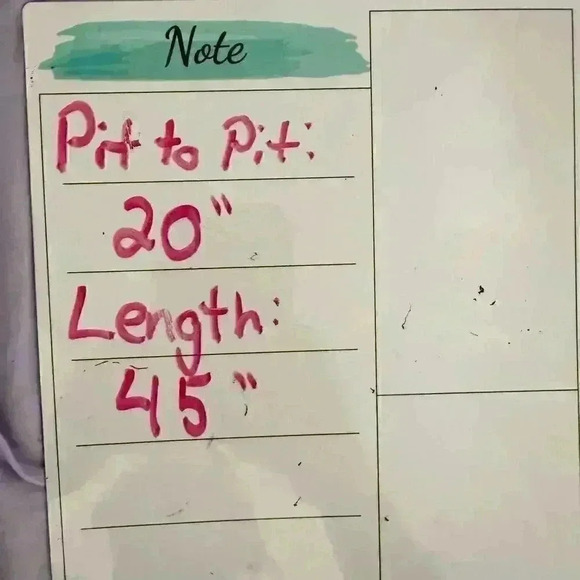 Note
Pit to Pit:
20"
Length:
45"